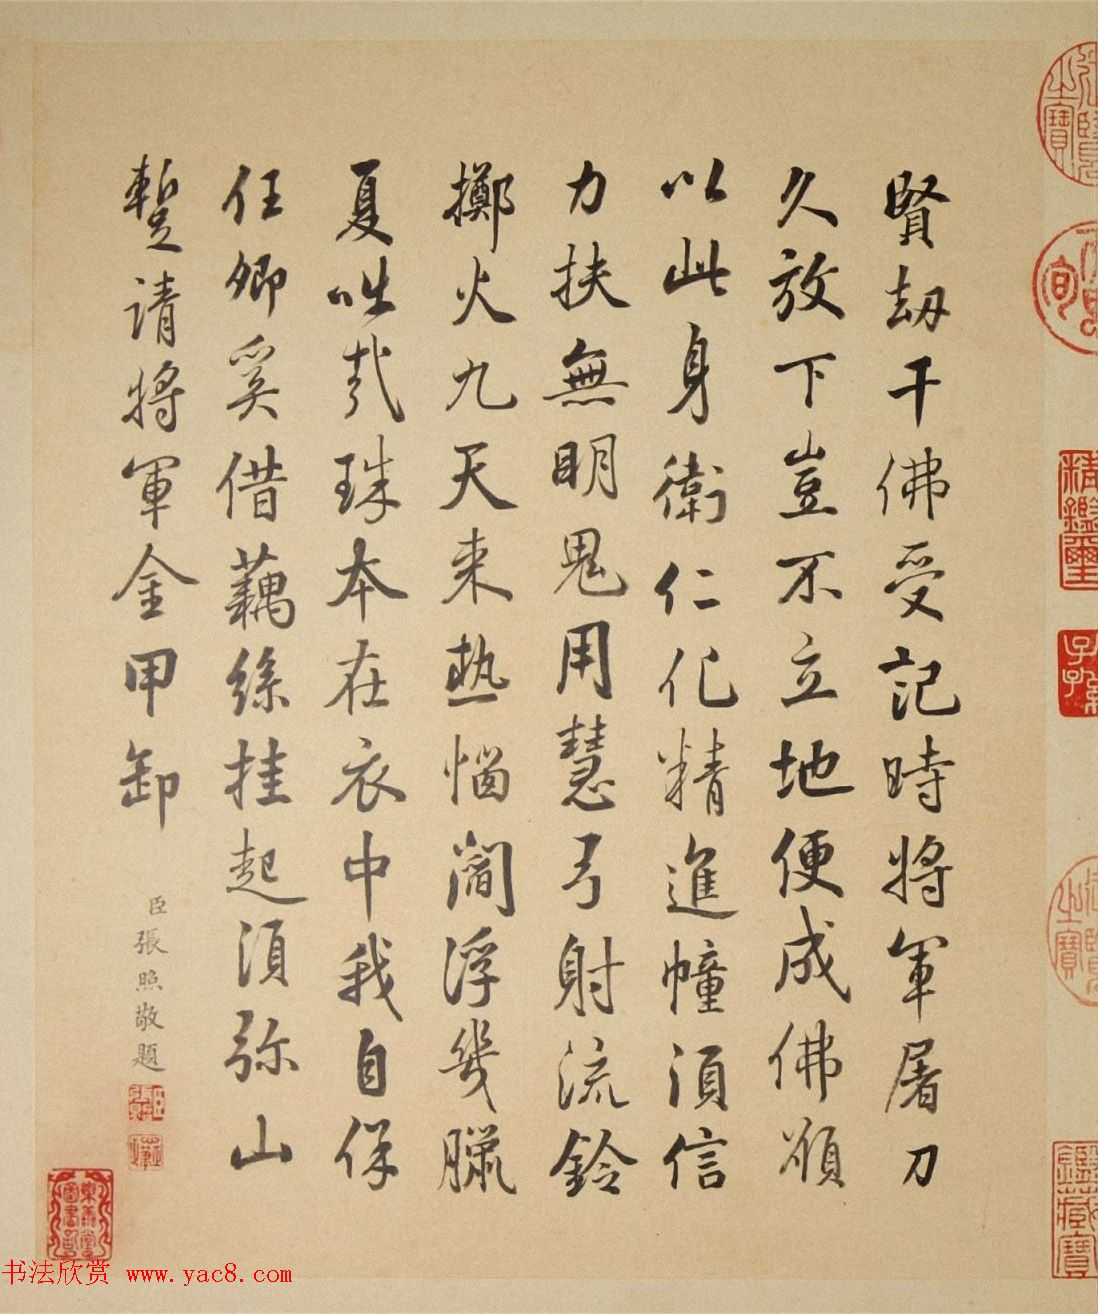 賢劫千佛受記時將軍屠刀
久放下豈不立地便成佛願
以此身衛仁化精進幢須信
力扶無明鬼用慧弓射流鈴
擲火九天來熱惱閻浮幾臘
夏咄哉珠本在衣中我自保
任卿奚借藕絲挂起須弥山
蹔請將軍金甲卸
臣張照敬題
精鑑璽
鑑藏寶
书法欣赏 www.yac8.com